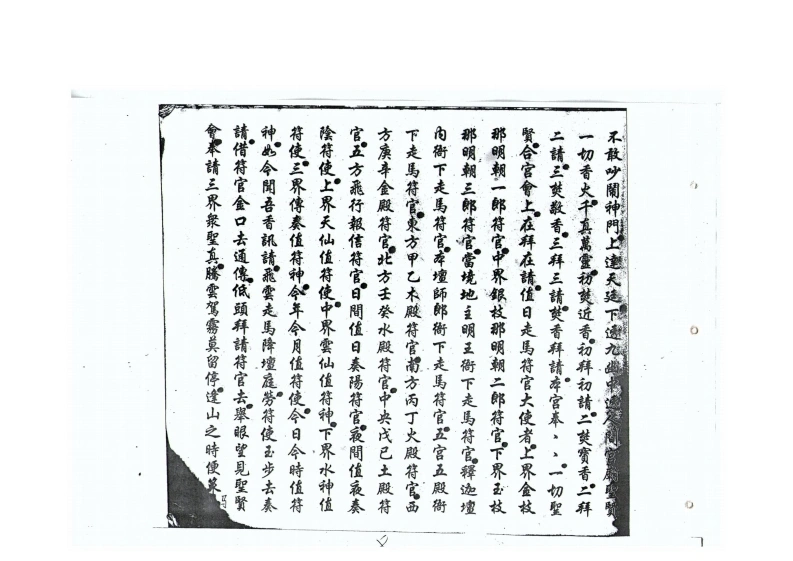 不敢吵鬧神門上達天廷下通九幽中
一切香火千真萬靈初奘近香初拜初請二奘寳香二拜
二請三奘散香三拜三請奘香拜請本宮奉ヽヽ一切聖
賢合宮會上在拜在請值日走馬符官大使者上界金枝
那明朝一郎符官中界銀枝那明朝二郎符官下界玉枝
那明朝三郎符官當境地主明王衙下走馬符官釋迦壇
內衙下走馬符官本壇師郎衙下走馬符官五宮五殿衙
下走馬符官東方甲乙木殿符官南方丙丁火殿符官西
方庚辛金殿符官北方壬癸水殿符官中央戊己土殿符
官五方飛行報信符官日間值日奏陽符官夜間值夜奏
陰符使上界天仙值符使中界雲仙值符神下界水神值
符使三界傳奏值符神今年今月值符使今日今時值符
神如今聞吾香訊請飛雲走馬降壇庭勞符使玉步去奏
請借符官金口去通傳低頭拜請符官去舉眼望見聖賢
會奉請三界衆聖真騰雲駕霧莫留停逢山之時便